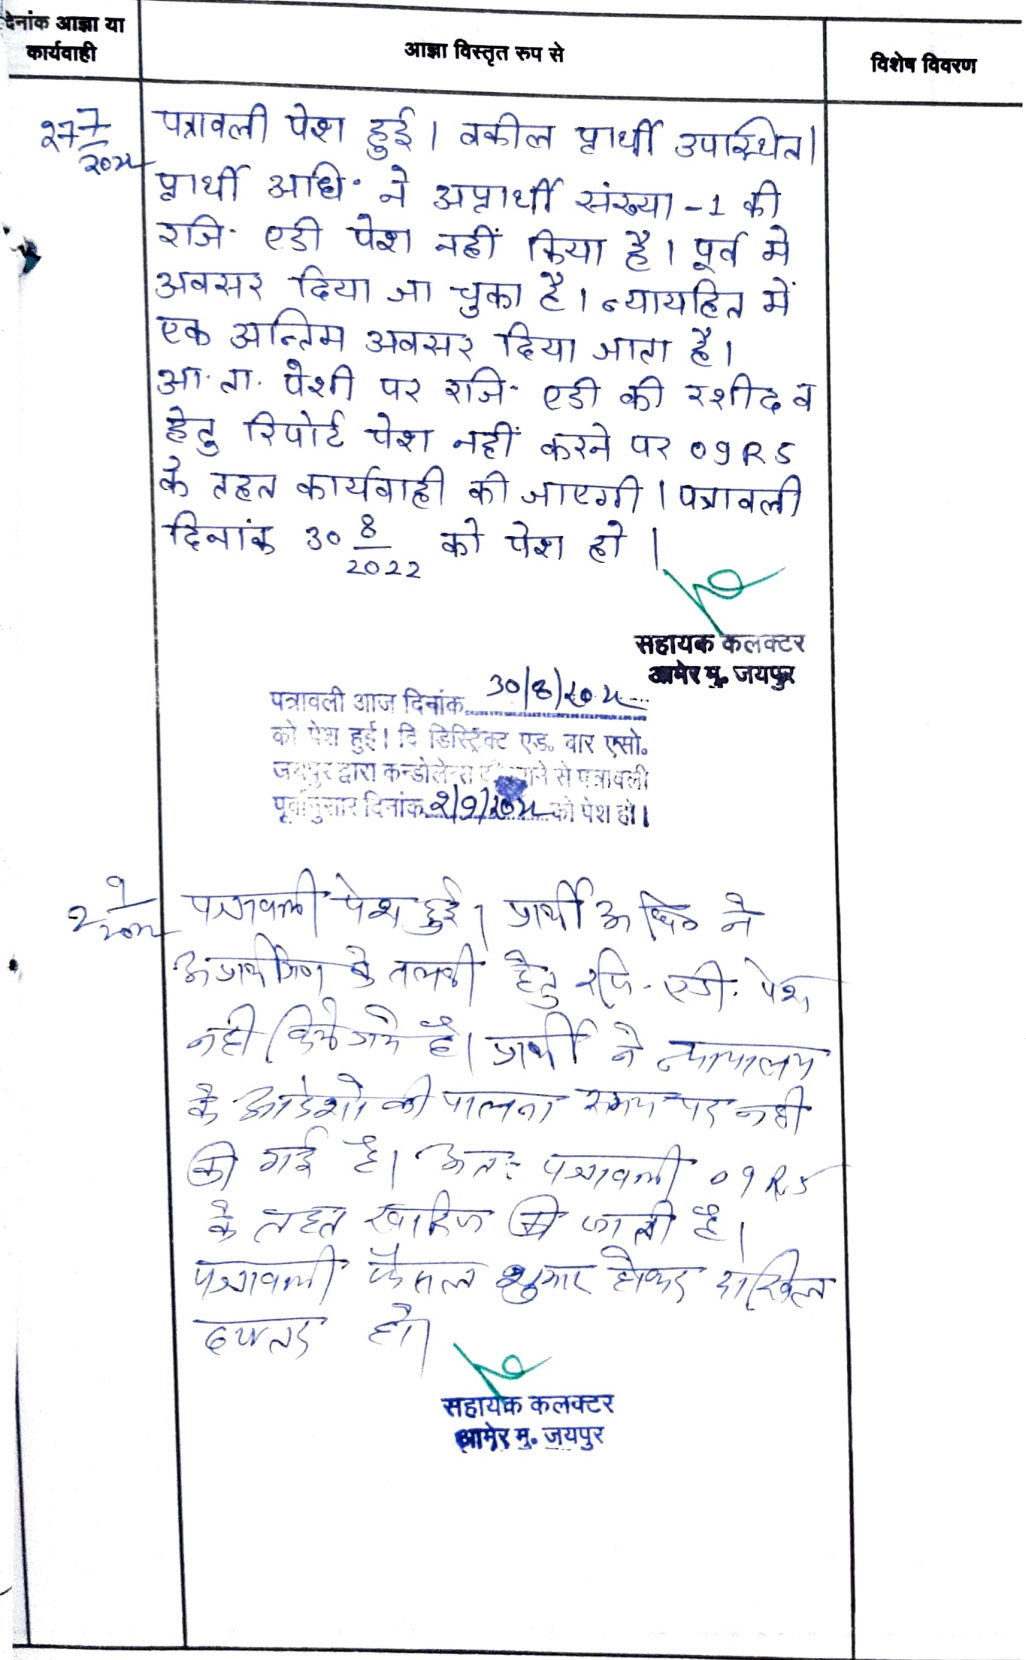 देनांक आज्ञा या
कार्यवाही
आज्ञा विस्तृत रुप से
विशेष विवरण
27 7/2022
पत्रावली पेश हुई। वकील प्रार्थी उपस्थित।
प्रार्थी अधि॰ ने अप्रार्थी संख्या -1 की
रजि॰ एडी पेश नहीं किया है। पूर्व मे
अवसर दिया जा चुका है। न्यायहित में
एक अन्तिम अवसर दिया जाता है।
आ. ता. पेशी पर रजि॰ एडी की रशीद व
हेतु रिपोर्ट पेश नहीं करने पर 09R5
के तहत कार्यवाही की जाएगी। पत्रावली
दिनांक 30 8/2022 को पेश हो।
सहायक कलक्टर
आमेर मु. जयपुर
पत्रावली आज दिनांक 30/8/2022
को पेश हुई। दि डिस्ट्रिक्ट एड. बार एसो.
जयपुर द्वारा कन्डोलेन्स से पत्रावली
पूर्वानुसार दिनांक 2/9/2022 को पेश हो।
2 9/2022
पत्रावली पेश हुई। प्रार्थी अधि॰ ने
अप्रार्थीगण के तलबी हेतु रजि. एडी. पेश
नही किये गये है। प्रार्थी ने न्यायालय
के आदेशो की पालना समय पर नही
की गई है। अतः पत्रावली 09R5
के तहत खारिज की जाती है।
पत्रावली फैसल शुमार होकर दाखिल
दफ्तर हो।
सहायक कलक्टर
आमेर मु. जयपुर